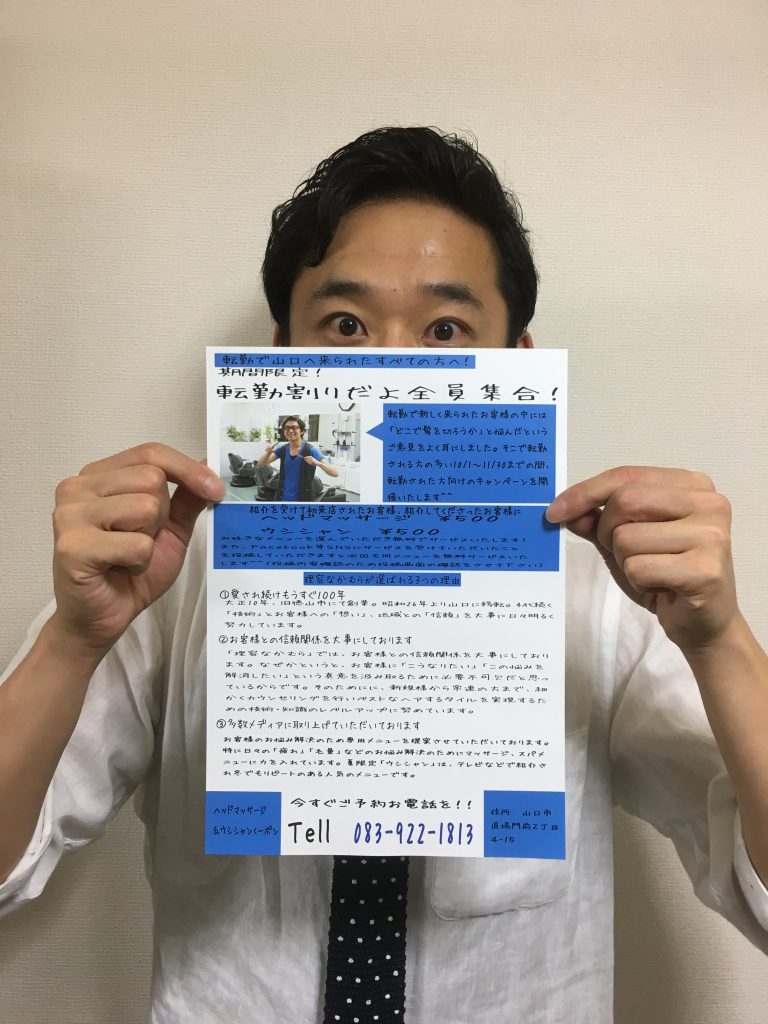 転勤で山口へ来られたすべての方へ!
期間限定!
転勤割りだよ全員集合!
転勤で新しく来られたお客様の中には
「どこで髪を切ろうか」と悩んだという
ご意見をよく耳にしました。そこで転勤
される方の多い10/1〜11/30までの間、
転勤された方向けのキャンペーンを開
催いたします^^
紹介を受けて初来店されたお客様、紹介してくださったお客様に
ヘッドマッサージ ¥500
ウシシャン ¥500
お好きなメニューを選んでいただき無料でサービスいたします!
また、Facebook等SNSにサービスを受けていただいたこと
を投稿していただきますと次回も同メニューを無料サービスいた
します^^(投稿内容確認のため投稿画面の確認をさせて下さい)
理容なかむらが選ばれる3つの理由
①愛され続けもうすぐ100年
大正10年、旧徳山市にて創業。昭和26年より山口に移転。4代続く
「技術」とお客様への「想い」、地域との「信頼」を大事に日々明るく
努力しています。
②お客様との信頼関係を大事にしております
「理容なかむら」では、お客様との信頼関係を大事にしており
ます。なぜかというと、お客様に「こうなりたい」「この悩みを
解消したい」という真意を汲み取るために必要不可欠だと思っ
ているからです。そのためにに、新規様から常連の方まで、細
かくカウンセリングを行いベストなヘアするタイルを実現するた
めの技術・知識のレベルアップに努めています。
③多数メディアに取り上げていただいております
お客様のお悩み解決のため専用メニューを提案させていただいております。
特に日々の「疲れ」「毛量」などのお悩み解決のためにマッサージ、スパメ
ニューに力を入れています。夏限定「ウシシャン」は、テレビなどで紹介さ
れ冬でもリピートのある人気のメニューです。
ヘッドマッサージ
&ウシシャンクーポン
今すぐご予約お電話を!!
Tell 083-922-1813
住所 山口市
道場門前2丁目
4-15